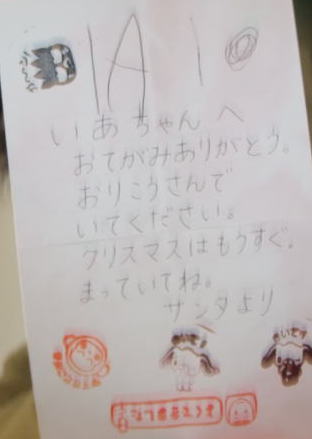 IAI
いあちゃんへ
おてがみありがとう。
おりこうさんで
いてください。
クリスマスはもうすぐ。
まっていてね。
サンタより